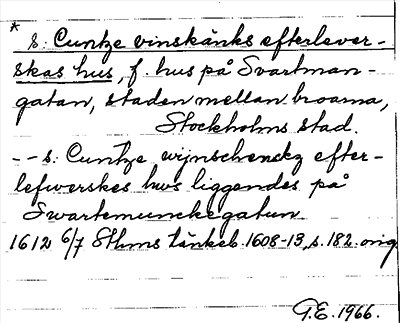 * S. Cuntze vinskänks efterlever-
skas hus, f. hus på Svartman-
gatan, staden mellan broarna,
Stockholms stad.
- - s. Cuntze wijnschenckz effter-
lefwerskes hws liggendes på
Swartemunckegatun
1612 6/7 Sthms tänkeb. 1608-13, s. 182. orig.
G.E. 1966.